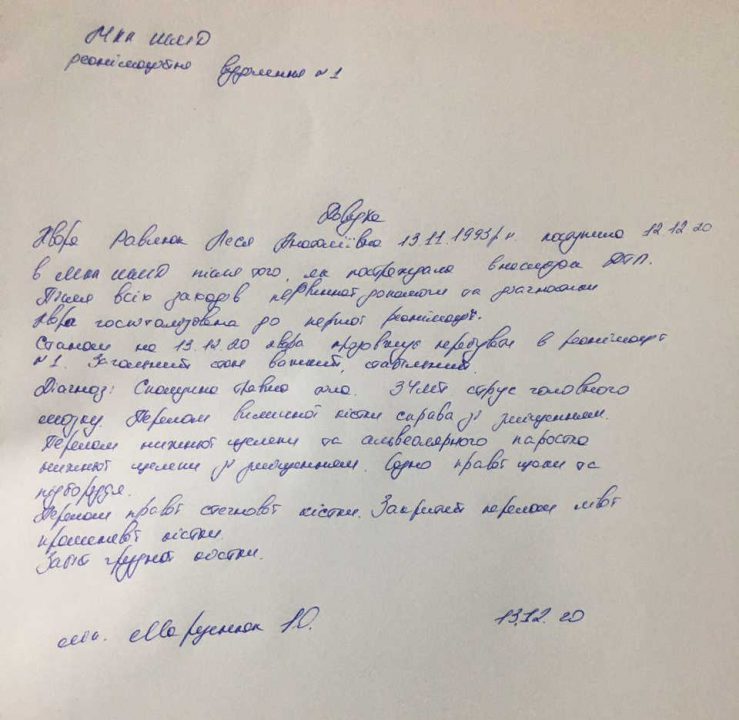 МКЛ ШМД
реанімаційне відділення №1
Довідка
Хвора Равлюк Леся Анатоліївна 13.11.1993 р.н. поступила 12.12.20
в МКЛ ШМД після того, як постраждала внаслідок ДТП.
Після всіх заходів первинної допомоги та діагностики
хвора госпіталізована до першої реанімації.
Станом на 13.12.20 хвора продовжує перебувати в реанімації
№1. Загальний стан важкий, стабільний.
Діагноз: Сполучна травма тіла. ЗЧМТ струс головного
мозку. Перелом виличної кістки справа зі зміщенням.
Перелом нижньої щелепи та альвеолярного паростка
нижньої щелепи зі зміщенням. Садно правої щоки та
підборіддя.
Перелом правої стегнової кістки. Закритий перелом лівої
променевої кістки.
Забій грудної клітки.
13.12.20